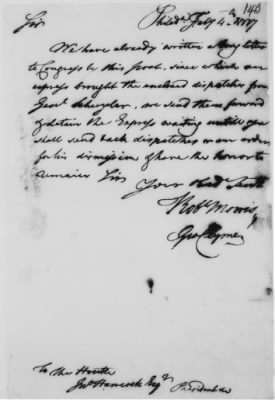 140
Philada Feby 4. 1777
Sir
We have already written a long letter
to Congress by this post. since which an
express brought the enclosed dispatches from
Genl Schuyler. we send them forward
& detain the Express waiting untill you
shall send back dispatches or an order
for his dismission & have the honor to
remain Sir
Your Obed Servts
Robt Morris
Geo Clymer
To The Honble
Jno Hancock Esqr